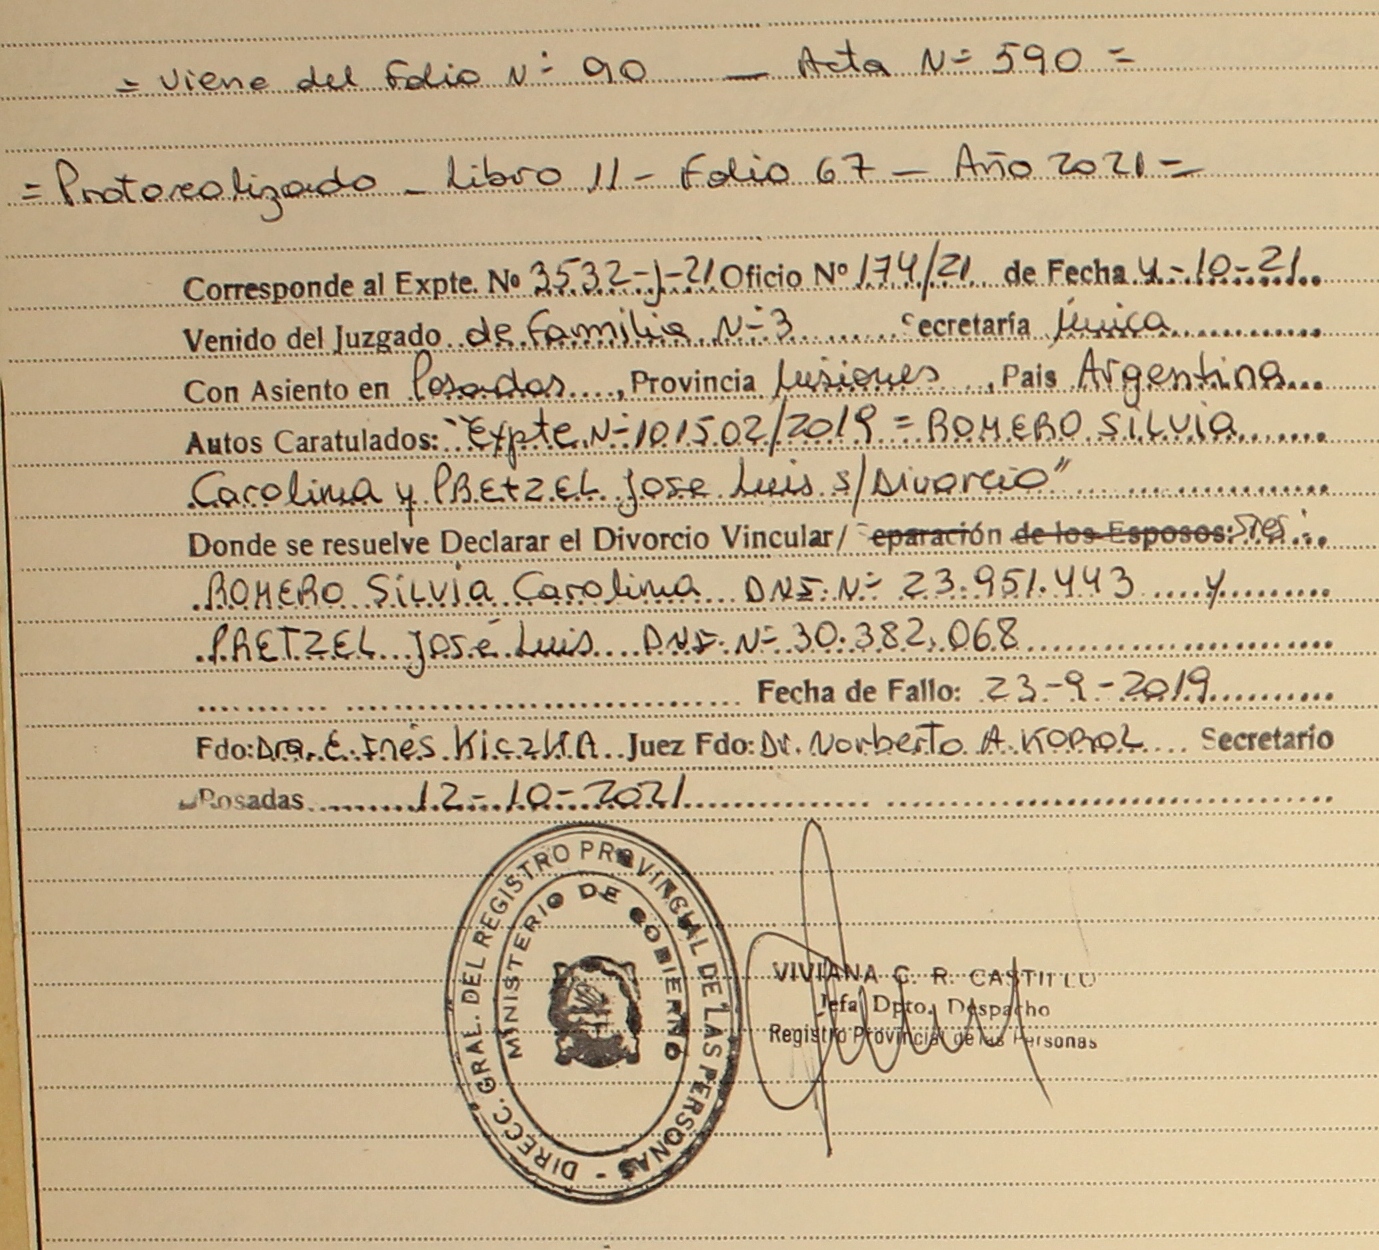 = Viene del Folio Nº 90 — Acta Nº 590 =
= Protocolizado - Libro 11 - Folio 67 - Año 2021 =
Corresponde al Expte. Nº 3532-J-21 Oficio Nº 174/21 de Fecha 4-10-21
Venido del Juzgado de Familia Nº 3 Secretaría Única
Con Asiento en Posadas, Provincia Misiones, Pais Argentina
Autos Caratulados: "Expte Nº 101502/2019 = ROMERO SILVIA
Carolina y PRETZEL Jose Luis s/Divorcio"
Donde se resuelve Declarar el Divorcio Vincular/ Separación de los Esposos: Sres:
ROMERO SILVIA Carolina DNI Nº 23.951.443 y
PRETZEL José Luis DNI Nº 30.382.068
Fecha de Fallo: 23-9-2019
Fdo: Dra. E. Inés KICZKA Juez Fdo: Dr. Norberto A. KOROL Secretario
Posadas 12-10-2021
DIRECC. GRAL. DEL REGISTRO PROVINCIAL DE LAS PERSONAS -
MINISTERIO DE GOBIERNO
VIVIANA G. R. CASTILLO
Jefa Dpto. Despacho
Registro Provincial de las Personas